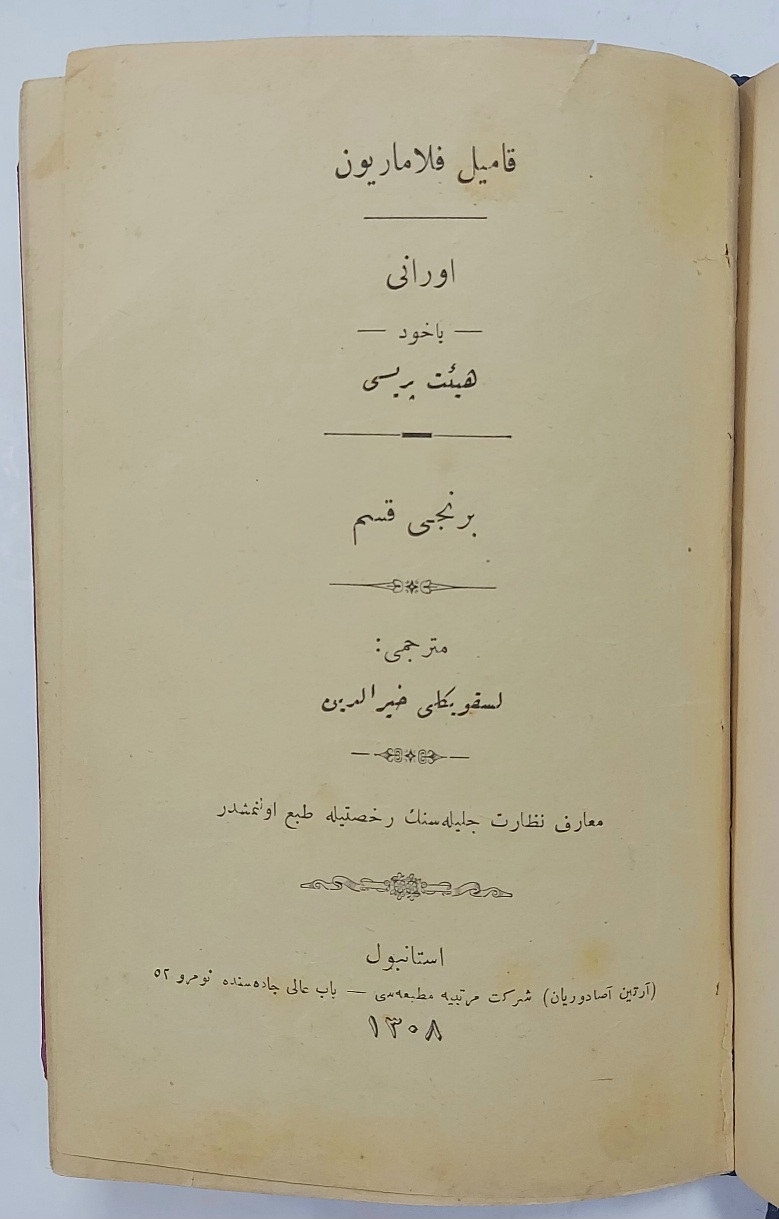 قامیل فلاماریون
اورانی
— یاخود —
هیئت پریسی
برنجی قسم
مترجمی:
لسقویكلی خیرالدین
معارف نظارت جلیله‌سنك رخصتیله طبع اولنمشدر
استانبول
(آرتین آصادوریان) شركت مرتبیه مطبعه‌سی — باب عالی جاده‌سنده نومرو ٥٢
١٣٠٨